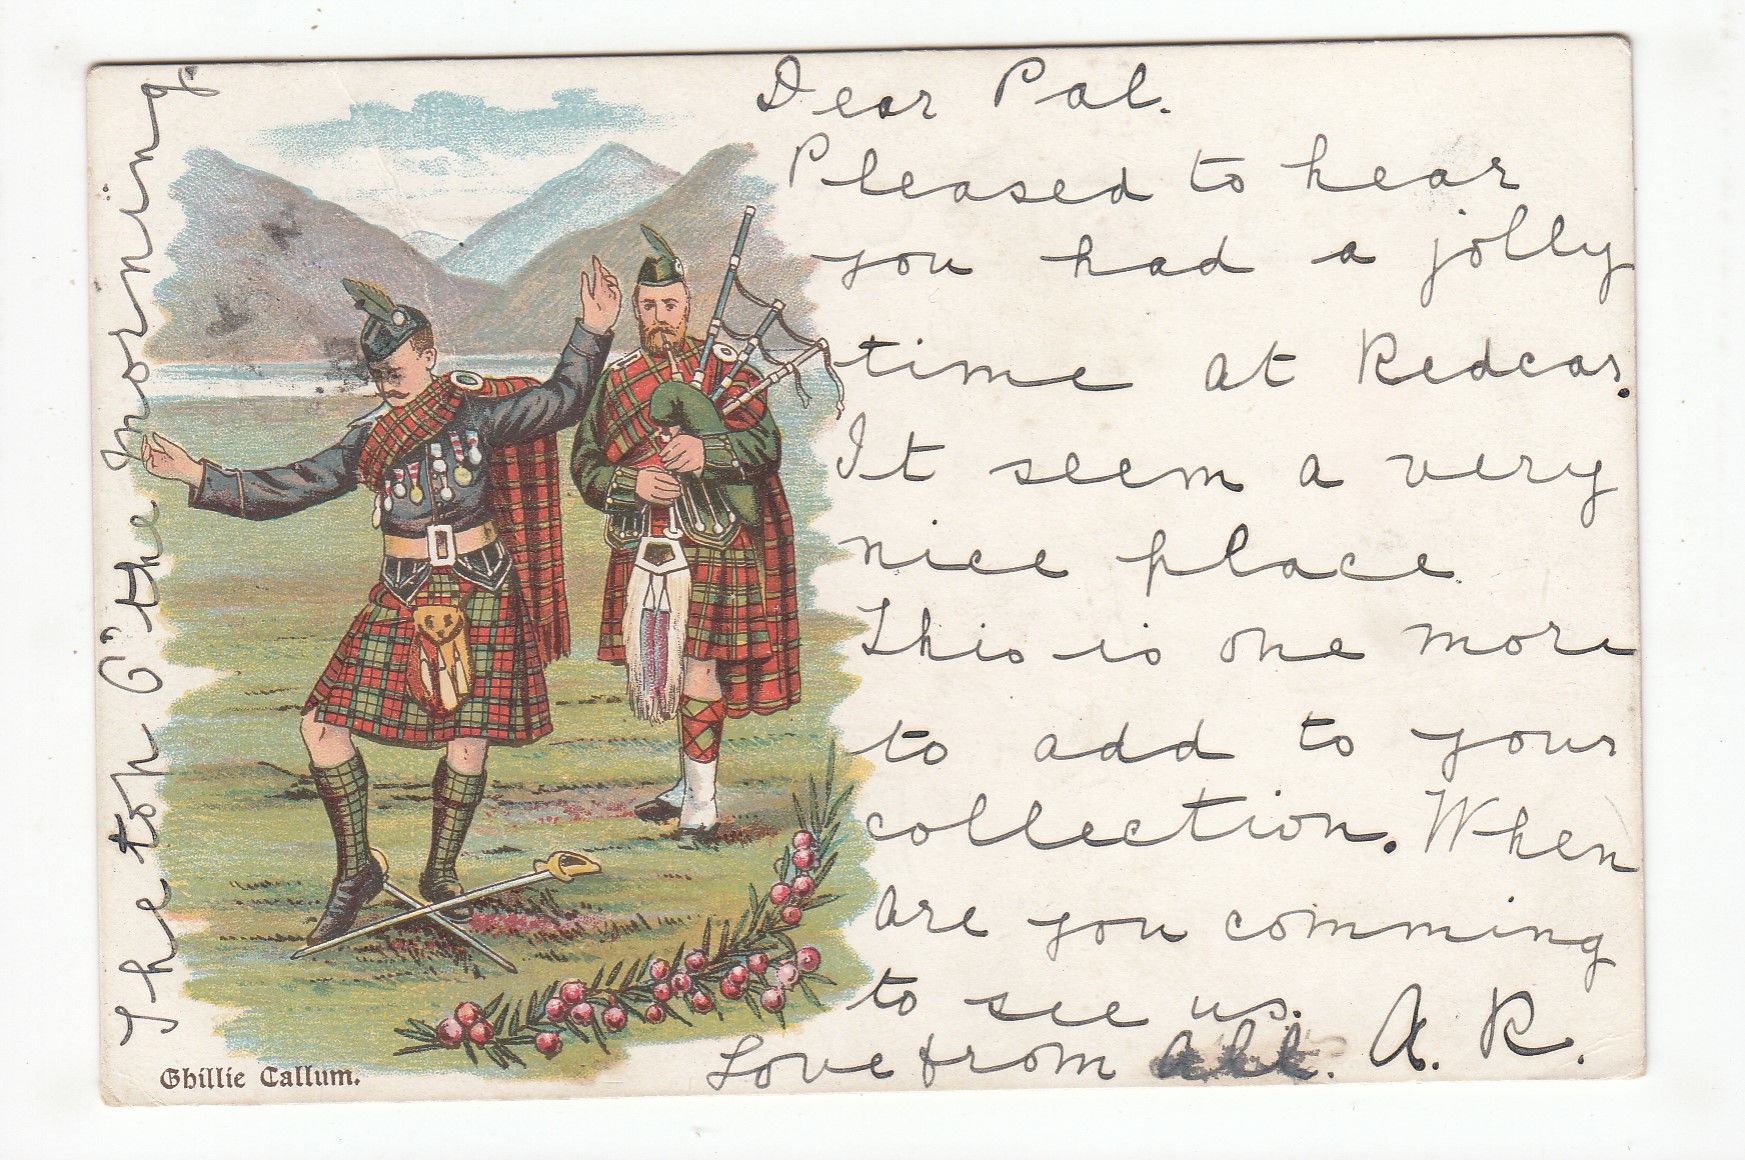 Dear Pal.
Pleased to hear
you had a jolly
time at Redcar.
It seem a very
nice place
This is one more
to add to your
collection. When
are you comming
to see us.
Love from all. A. R.
The top O' the morning.
Ghillie Callum.